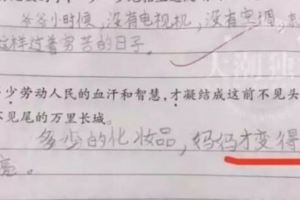 爷爷小时候，没有电视机，没有空调，
这样过着劳苦的日子。
少劳动人民的血汗和智慧，才凝结成这前不见头
不见尾的万里长城。
多少的化妆品，妈妈才变得
亮。